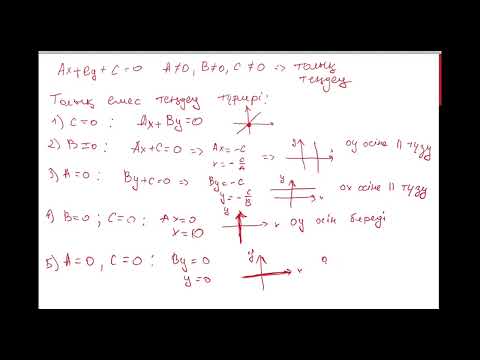 Ax+By+C=0 A≠0, B≠0, C≠0 => толық
теңдеу
Толық емес теңдеу түрлері:
1) C=0 : Ax+By=0
2) B=0 : Ax+C=0 => Ax=-C => y оу осіне || түзу
x=-C/A
3) A=0 : By+C=0 => By=-C y ох осіне || түзу
y=-C/B x
4) B=0; C=0 : Ax=0 y x оу осін береді
x=0
5) A=0, C=0 : By=0 y x
y=0